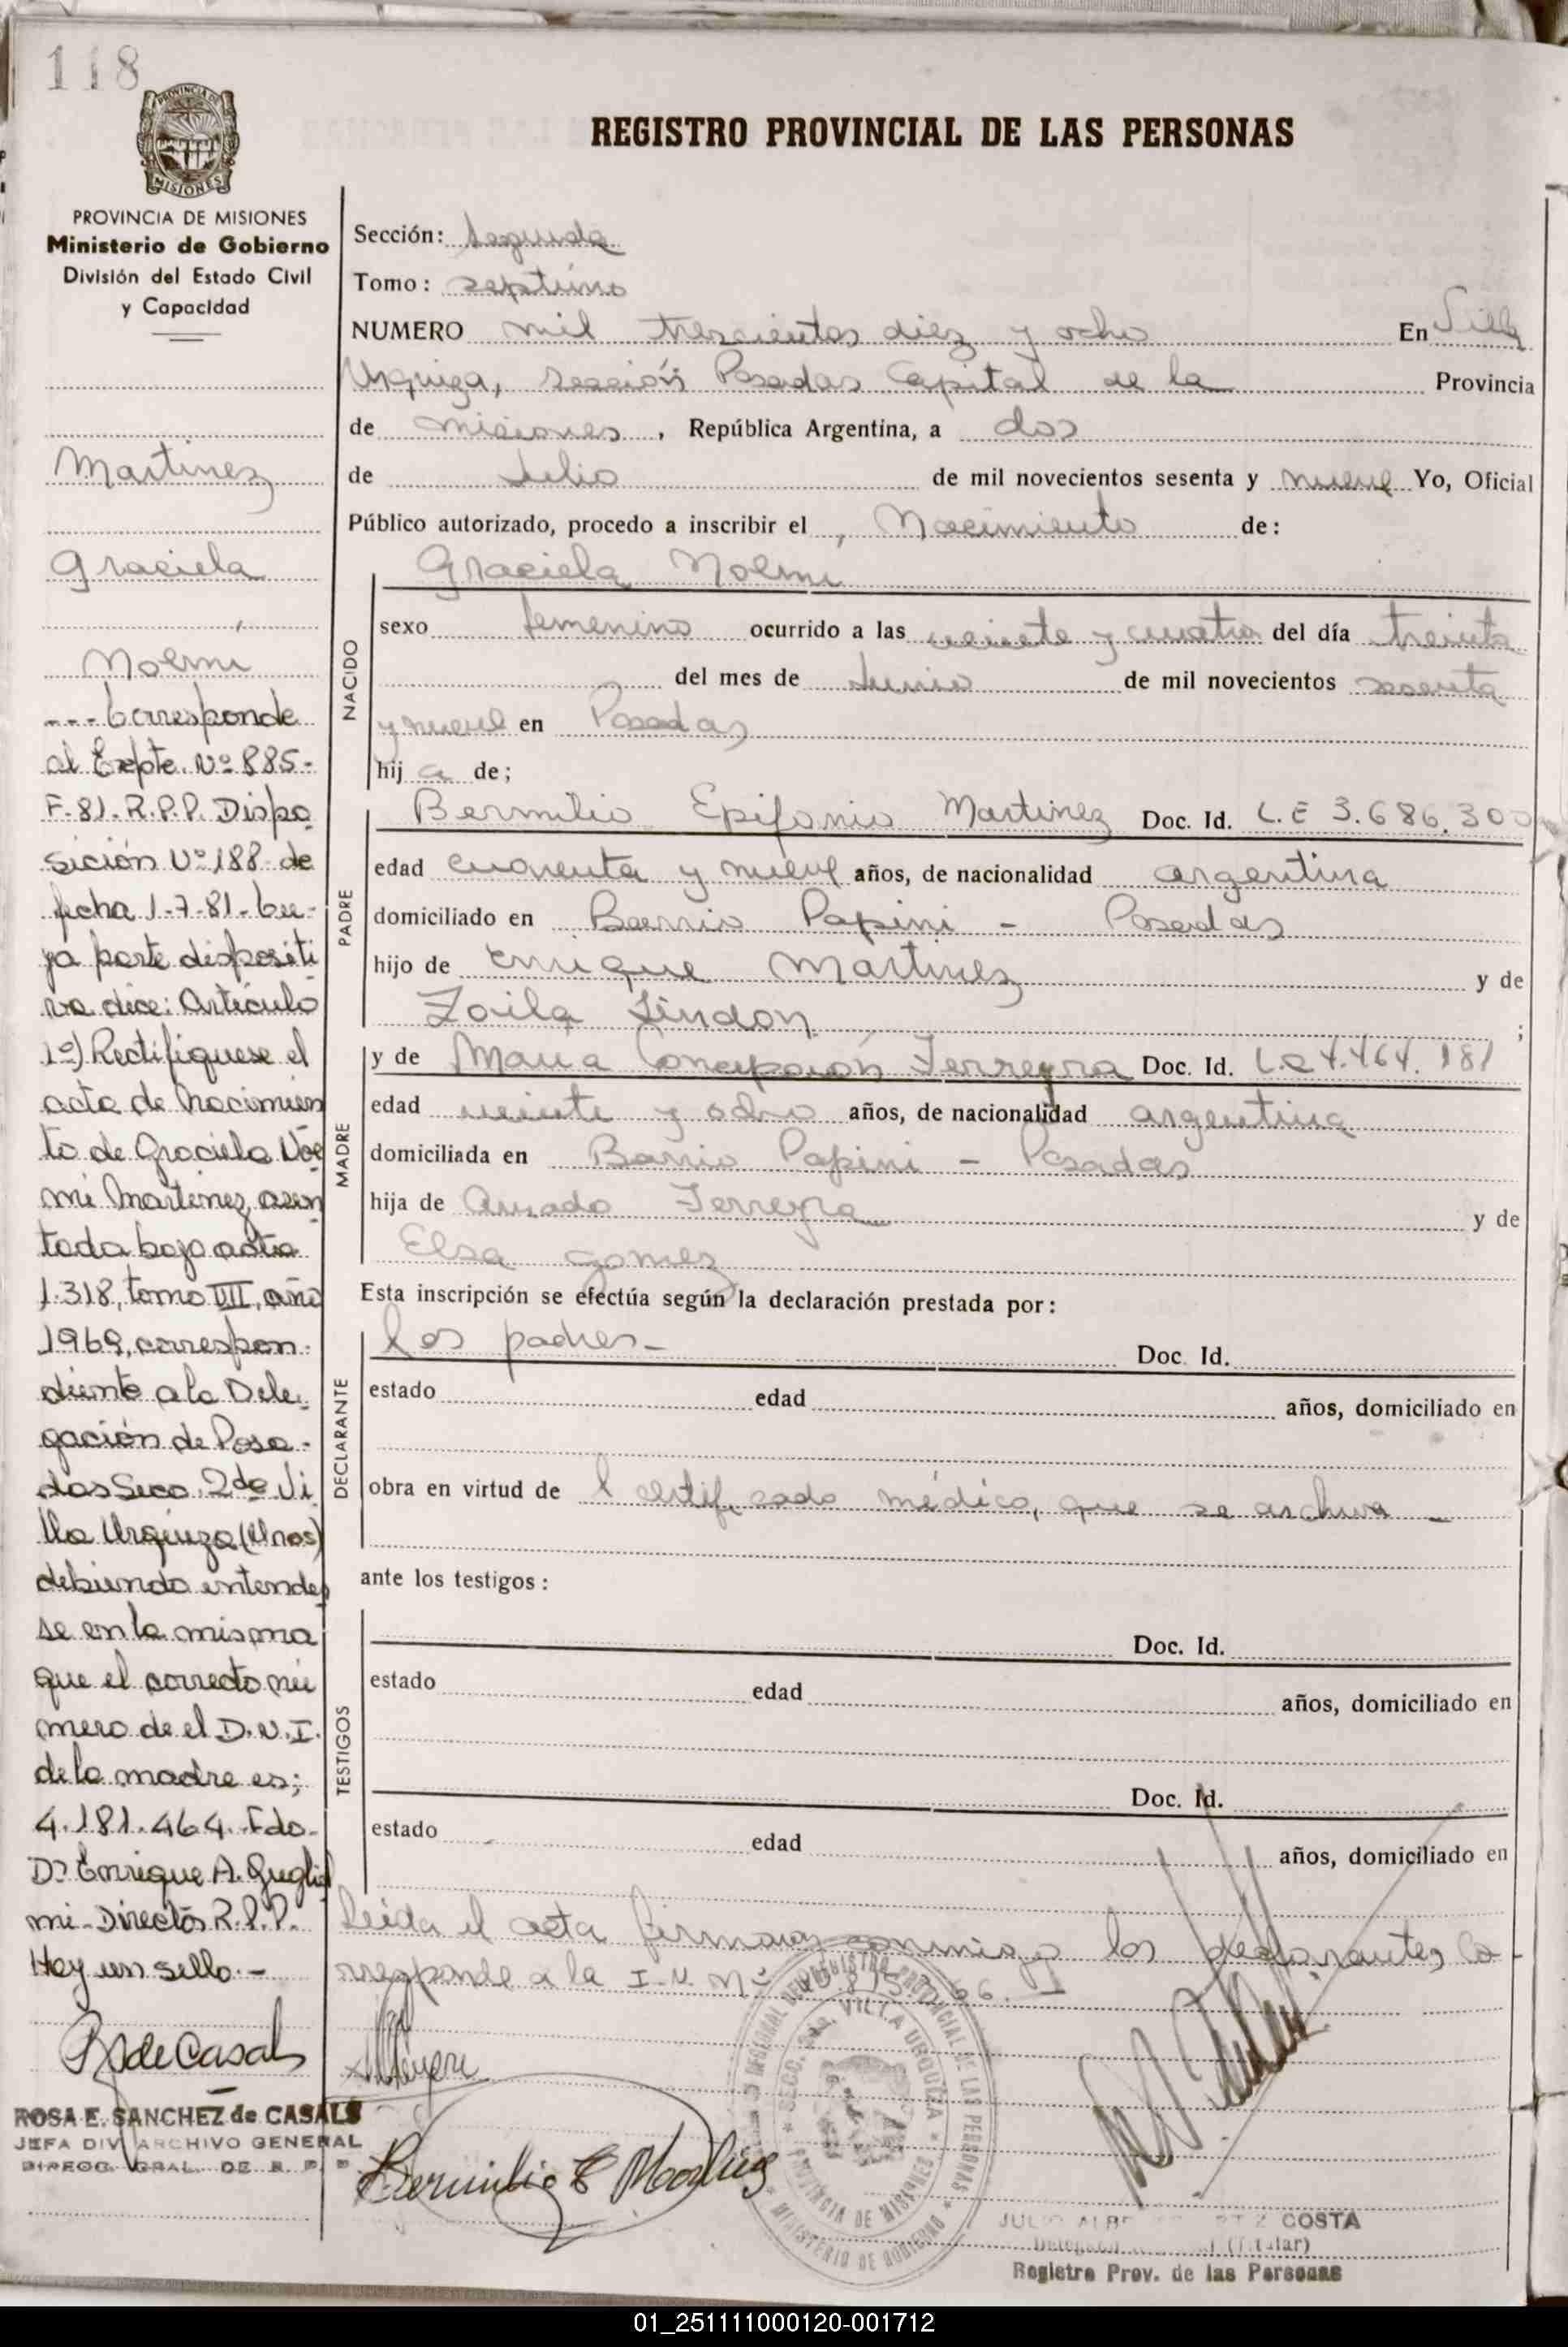 118
PROVINCIA DE
MISIONES
REGISTRO PROVINCIAL DE LAS PERSONAS
PROVINCIA DE MISIONES
Ministerio de Gobierno
División del Estado Civil
y Capacidad
Martinez
Graciela
Noemi
--- Corresponde
al Expte. Nº 885-
F-81-R.P.P. Dispo
sición Nº 188 de
fecha 1-7-81-Cu-
ya parte dispositi
va dice: Artículo
1º) Rectifíquese el
acta de Nacimien
to de Graciela Noe
mi Martinez, asen
tada bajo acta
1.318, tomo VII, año
1969, correspon-
diente a la Dele-
gación de Posa-
das Secc. 2da Vi
lla Urquiza (Mnes)
debiendo entender
se en la misma
que el correcto nú
mero de el D.N.I.
de la madre es;
4.181.464. Fdo.
Dr Enrique A. Guglial
mi-Director R.P.P.
Hay un sello.-
R S de Casals
ROSA E. SANCHEZ de CASALS
JEFA DIV ARCHIVO GENERAL
DIRECC. GRAL. DE R. P. P
Sección: Segunda
Tomo: septimo
NUMERO mil trescientos diez y ocho En Villa
Urquiza, sección Posadas Capital de la Provincia
de misiones, República Argentina, a dos
de Julio de mil novecientos sesenta y nueve Yo, Oficial
Público autorizado, procedo a inscribir el Nacimiento de:
Graciela Noemi
NACIDO
sexo femenino ocurrido a las veinte y cuatro del día treinta
del mes de Junio de mil novecientos sesenta
y nueve en Posadas
hij a de;
PADRE
Bermilio Epifanio Martinez Doc. Id. L.E 3.686.300
edad cuarenta y nueve años, de nacionalidad argentina
domiciliado en Barrio Papini - Posadas
hijo de Enrique Martinez y de
Zoila Lindon ;
MADRE
y de Maria Concepción Ferreyra Doc. Id. L.C 4.464.181
edad veinte y ocho años, de nacionalidad argentina
domiciliada en Barrio Papini - Posadas
hija de Amado Ferreyra y de
Elsa gomez
Esta inscripción se efectúa según la declaración prestada por:
DECLARANTE
los padres- Doc. Id.
estado edad años, domiciliado en
obra en virtud de l certificado médico, que se archiva -
ante los testigos:
TESTIGOS
Doc. Id.
estado edad años, domiciliado en
Doc. Id.
estado edad años, domiciliado en
Leida el acta firman conmigo los declarantes, Co-
rresponde a la I.N. Nº
Bermilio E Martinez
REGISTRO PROVINCIAL DE LAS PERSONAS
SECC. 2da. VILLA URQUIZA
PROVINCIA DE MISIONES
MINISTERIO DE GOBIERNO
COSTA
(Titular)
Registro Prov. de las Personas
01_251111000120-001712